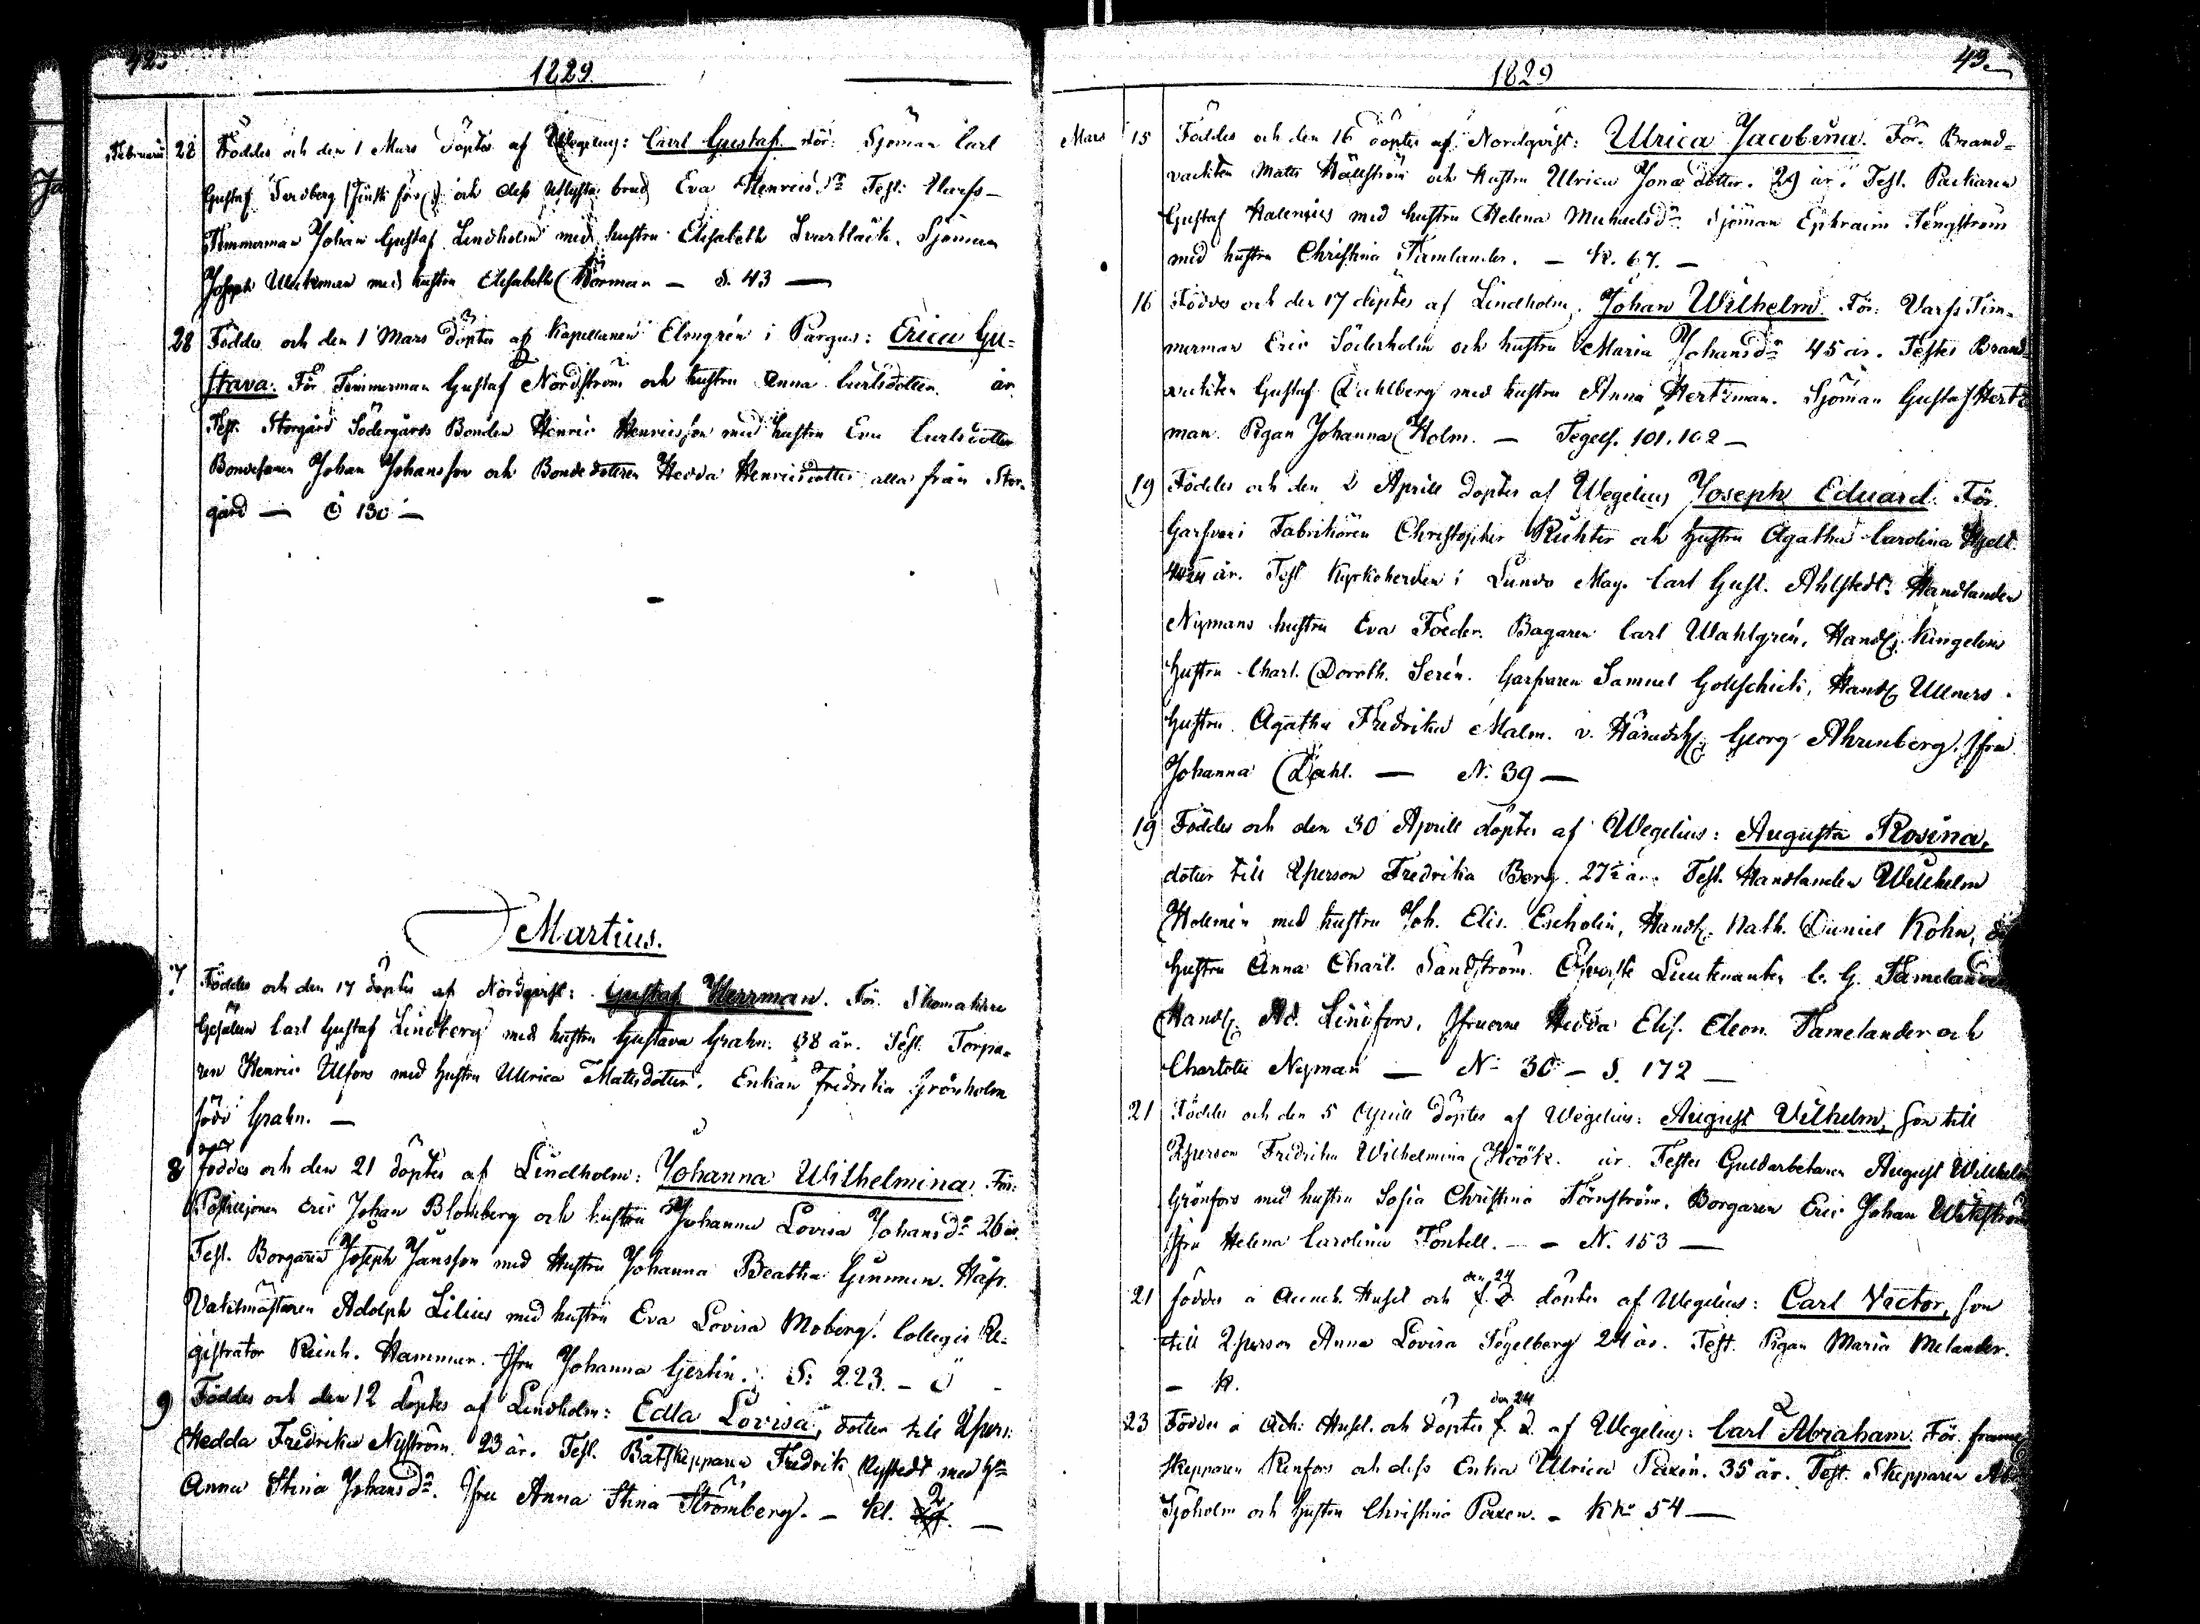 42.
1829.
Februarii 28 Föddes och den 1 Mars döptes af Wegelius: Carl Gustaf. För: Sjöman Carl
Gustaf Sandberg och dess utlysta brud Eva Henricsdr Test: Warfs-
Timmerman Johan Gustaf Lindholm med hustru Elisabeth Svartbäck. Sjöman
Joseph Wekman med hustru Elisabeth Törman — S. 43 —
28 Föddes och den 1 Mars döptes af Kapellanen Elmgrén i Pargas: Erica Gu=
stava. För Timmerman Gustaf Nordström och hustru Anna Carlsdotter. år.
Test. Storgård Södergårds Bonden Henric Henricsson med hustru Eva Carlsdotter
Bondesonen Johan Johansson och Bondedottren Hedda Henricsdotter alla från Stor-
gård — Ö 130 —
Martius.
7 Föddes och den 17 döptes af Nordqvist: Gustaf Herrman. För. Skomakare
Gesällen Carl Gustaf Lindberg med hustru Gustava Grahn. 38 år. Test. Torpa-
ren Henric Ulfors med hustru Ulrica Matsdotter. Enkan Fredrika Grönholm
född Grahn. —
8 Föddes och den 21 döptes af Lindholm: Johanna Wilhelmina. För:
Postiljonen Eric Johan Blomberg och hustru Johanna Lovisa Johansdr 26 år.
Test. Borgaren Joseph Jansson med Hustru Johanna Beatha Ginman. Hofr.
Vaktmästaren Adolph Lilius med hustru Eva Lovisa Moberg. Collegii Re-
gistrator Reinh. Hammar. Jfru Johanna Gestrin. S: 223. —
9 Föddes och den 12 döptes af Lindholm: Edla Lovisa, dotter till Qpers:
Hedda Fredrika Nyström. 23 år. Test. Båtskepparen Fredrik Nystedt med H:u
Anna Stina Johansdr. Jfru Anna Stina Strömberg. — Kl. 2 —
43.
1829
Mars 15 Föddes och den 16 döptes af Nordqvist: Ulrica Jacobina. För. Brand=
vackten Matts Hällström och hustru Ulrica Jonædotter. 29 år. Test. Packaren
Gustaf Halenius med hustru Helena Michaelsdr Sjöman Ephraim Tengström
med hustru Christina Tamlander. — K. 67. —
16 Föddes och den 17 döptes af Lindholm. Johan Wilhelm. För: Varfs Tim-
merman Eric Söderholm och hustru Maria Johansdr 45 år. Testes Brand=
vackten Gustaf Dahlberg med hustru Anna Hertzman. Sjöman Gustaf Hertz
man. Pigan Johanna Holm. — Tegelf. 101.102 —
19 Föddes och den 2 Aprill döptes af Wegelius Joseph Eduard. För.
Garfveri Fabrikören Christopher Richter och hustru Agatha Carolina Hjelt
år. Test Kyrkoherden i Lundo Mag. Carl Gust. Ahlstedt. Handlanden
Nymans hustru Eva Foeder. Bagaren Carl Wahlgrén, Handl. Kingelins
hustru Charl. Doroth. Serén. Garfvaren Samuel Gottschick, Handl Ullners
hustru Agatha Fredrika Malm. v. Häradsh. Georg Ahrenberg. Jfru
Johanna Dahl. — N. 39 —
19 Föddes och den 30 Aprill döptes af Wegelius: Augusta Rosina,
dotter till Qperson Fredrika Berg. 27½ år. Test. Handlanden Willhelm
Holmén med hustru Joh. Elis. Escholin, Handl. Nath. Daniel Kohn,
hustru Anna Charl. Sandström. Öfverste Lieutenanten C. G. Tamelander
Handl. Ad. Lindfors, Jfruerne Hedda Elis. Eleon. Tamelander och
Charlotte Nyman — N: 30 — S. 172 —
21 Föddes och den 5 Aprill döptes af Wegelius: August Vilhelm, son till
Qperson Fredrika Wilhelmina Höök. år. Testes Guldarbetaren August Willhelm
Grönfors med hustru Sofia Christina Törnström. Borgaren Eric Johan Wikström
Jfru Helena Carolina Fontell. — — N. 153 —
21 Föddes å Accouch. Huset och den 24 döptes af Wegelius: Carl Victor, son
till Qperson Anna Lovisa Fogelberg 24 år. Test. Pigan Maria Melander.
— K.
23 Föddes å Ach: Huset och döptes den 24 af Wegelius: Carl Abraham. För framl
Skepparen Renfors och dess Enka Ulrica Paxén. 35 år. Test. Skepparen
Sjöholm och hustru Christina Paxen. — K No 54 —